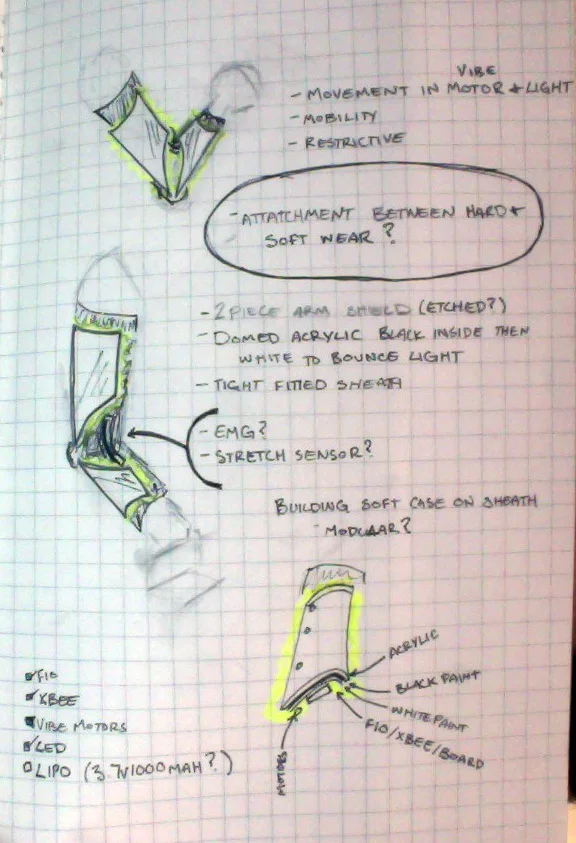 VIBE
- MOVEMENT IN MOTOR + LIGHT
- MOBILITY
- RESTRICTIVE
- ATTATCHMENT BETWEEN HARD +
SOFT WEAR?
- 2 PIECE ARM SHIELD (ETCHED?)
- DOMED ACRYLIC BLACK INSIDE THEN
WHITE TO BOUNCE LIGHT
- TIGHT FITTED SHEATH
- EMG?
- STRETCH SENSOR?
BUILDING SOFT CASE ON SHEATH
- MODULAR?
ACRYLIC
BLACK PAINT
WHITE PAINT
FIO/XBEE/BOARD
MOTORS
FIO
XBEE
VIBE MOTORS
LED
LIPO (3.7V1000MAH?)